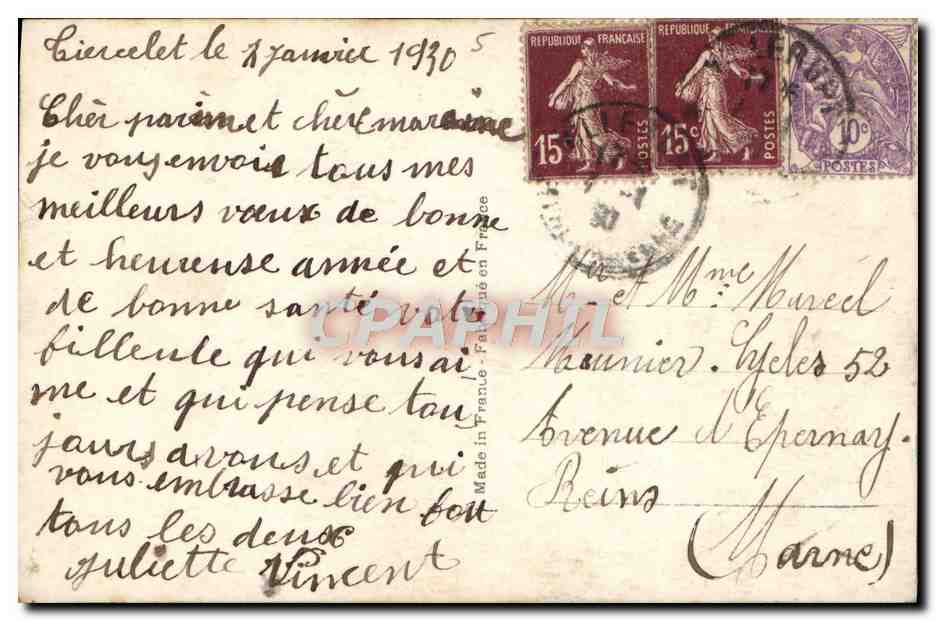 Tiercelet le 7 Janvier 1930
Chèr parinet chère maraine
je vousenvoie tous mes
meilleurs vœux de bonne
et heureuse année et
de bonne santé votr
filleule qui vousai
me et qui pense tou
jours avous et qui
vous embrasse bien fort
tous les deux
Juliette Vincent
Made in France - Fabriqué en France
REPUBLIQUE FRANÇAISE
15c
POSTES
REPUBLIQUE FRANÇAISE
15c
POSTES
10c
POSTES
VILLERUPT
Mr et Mme Marcel
Meunier. Cycles 52
Avenue d'Epernay.
Reims
(Marne)
CPAPHIL